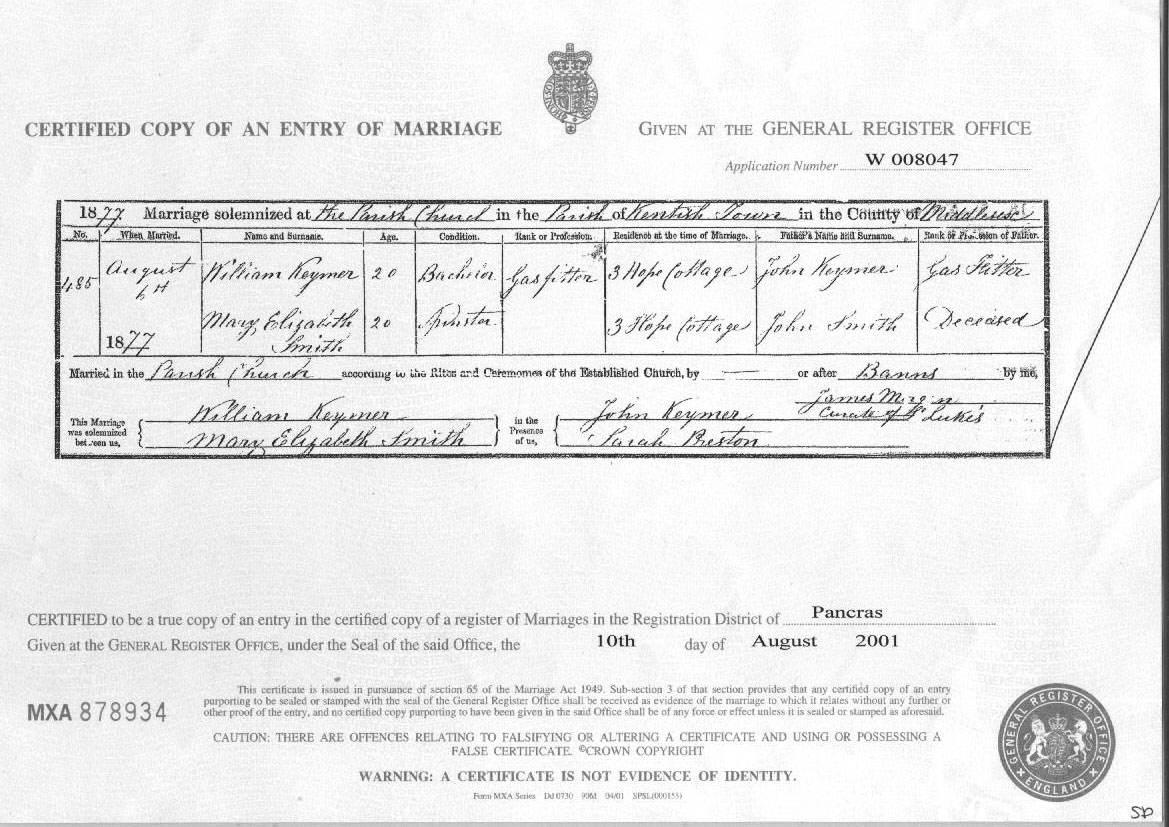 CERTIFIED COPY OF AN ENTRY OF MARRIAGE
GIVEN AT THE GENERAL REGISTER OFFICE
Application Number W 008047
1877. Marriage solemnized at the Parish Church in the Parish of Kentish Town in the County of Middlesex
No. When Married. Name and Surname. Age. Condition. Rank or Profession. Residence at the time of Marriage. Father's Name and Surname. Rank or Profession of Father.
485 August 6th 1877 William Keymer 20 Bachelor Gas fitter 3 Hope Cottage John Keymer Gas Fitter
Mary Elizabeth Smith 20 Spinster 3 Hope Cottage John Smith Deceased
Married in the Parish Church according to the Rites and Ceremonies of the Established Church, by or after Banns by me,
James
Curate of St Luke's
This Marriage was solemnized between us, William Keymer in the Presence of us, John Keymer
Mary Elizabeth Smith Sarah Preston
CERTIFIED to be a true copy of an entry in the certified copy of a register of Marriages in the Registration District of Pancras
Given at the GENERAL REGISTER OFFICE, under the Seal of the said Office, the 10th day of August 2001
MXA 878934
This certificate is issued in pursuance of section 65 of the Marriage Act 1949. Sub-section 3 of that section provides that any certified copy of an entry
purporting to be sealed or stamped with the seal of the General Register Office shall be received as evidence of the marriage to which it relates without any further or
other proof of the entry, and no certified copy purporting to have been given in the said Office shall be of any force or effect unless it is sealed or stamped as aforesaid.
CAUTION: THERE ARE OFFENCES RELATING TO FALSIFYING OR ALTERING A CERTIFICATE AND USING OR POSSESSING A
FALSE CERTIFICATE. ©CROWN COPYRIGHT
WARNING: A CERTIFICATE IS NOT EVIDENCE OF IDENTITY.
Form MXA Series Dd 0730 90M 04/01 SPSL(000153)
GENERAL REGISTER OFFICE
ENGLAND